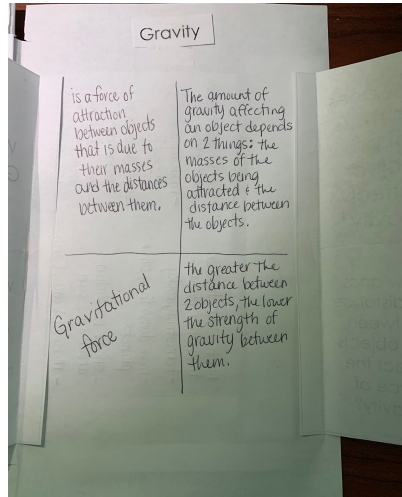 Gravity
is a force of
attraction
between objects
that is due to
their masses
and the distances
between them.
The amount of
gravity affecting
an object depends
on 2 things: the
masses of the
objects being
attracted & the
distance between
the objects.
Gravitational
force
the greater the
distance between
2 objects, the lower
the strength of
gravity between
them.